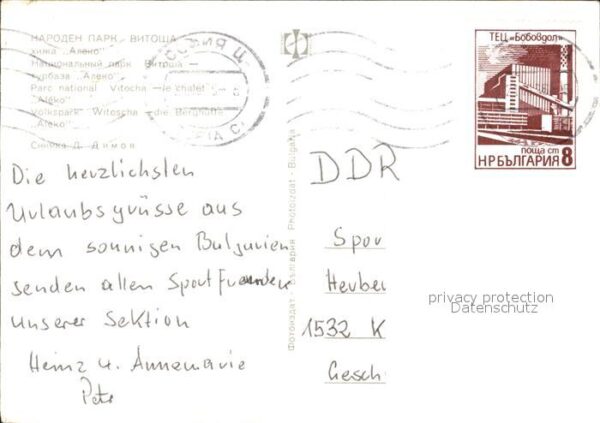 НАРОДЕН ПАРК ВИТОША
хижа „Алеко"
Национальный парк Витоша —
турбаза „Алеко"
Parc national Vitocha — le chalet
"Aleko"
Volkspark Witoscha - die Berghütte
„Aleko"
Снимка Д. Димов
СОФИЯ Ц.
ТЕЦ „Бобовдол"
поща ст
НР БЪЛГАРИЯ 8
Фотоиздат · България Photoizdat · Bulgaria
Die herzlichsten
Urlaubsgrüsse aus
dem sonnigen Bulgarien
senden allen Sportfreunden
unserer Sektion
Heinz u. Annemarie
DDR
Spor
Heuber
1532 K
Gesch
privacy protection
Datenschutz